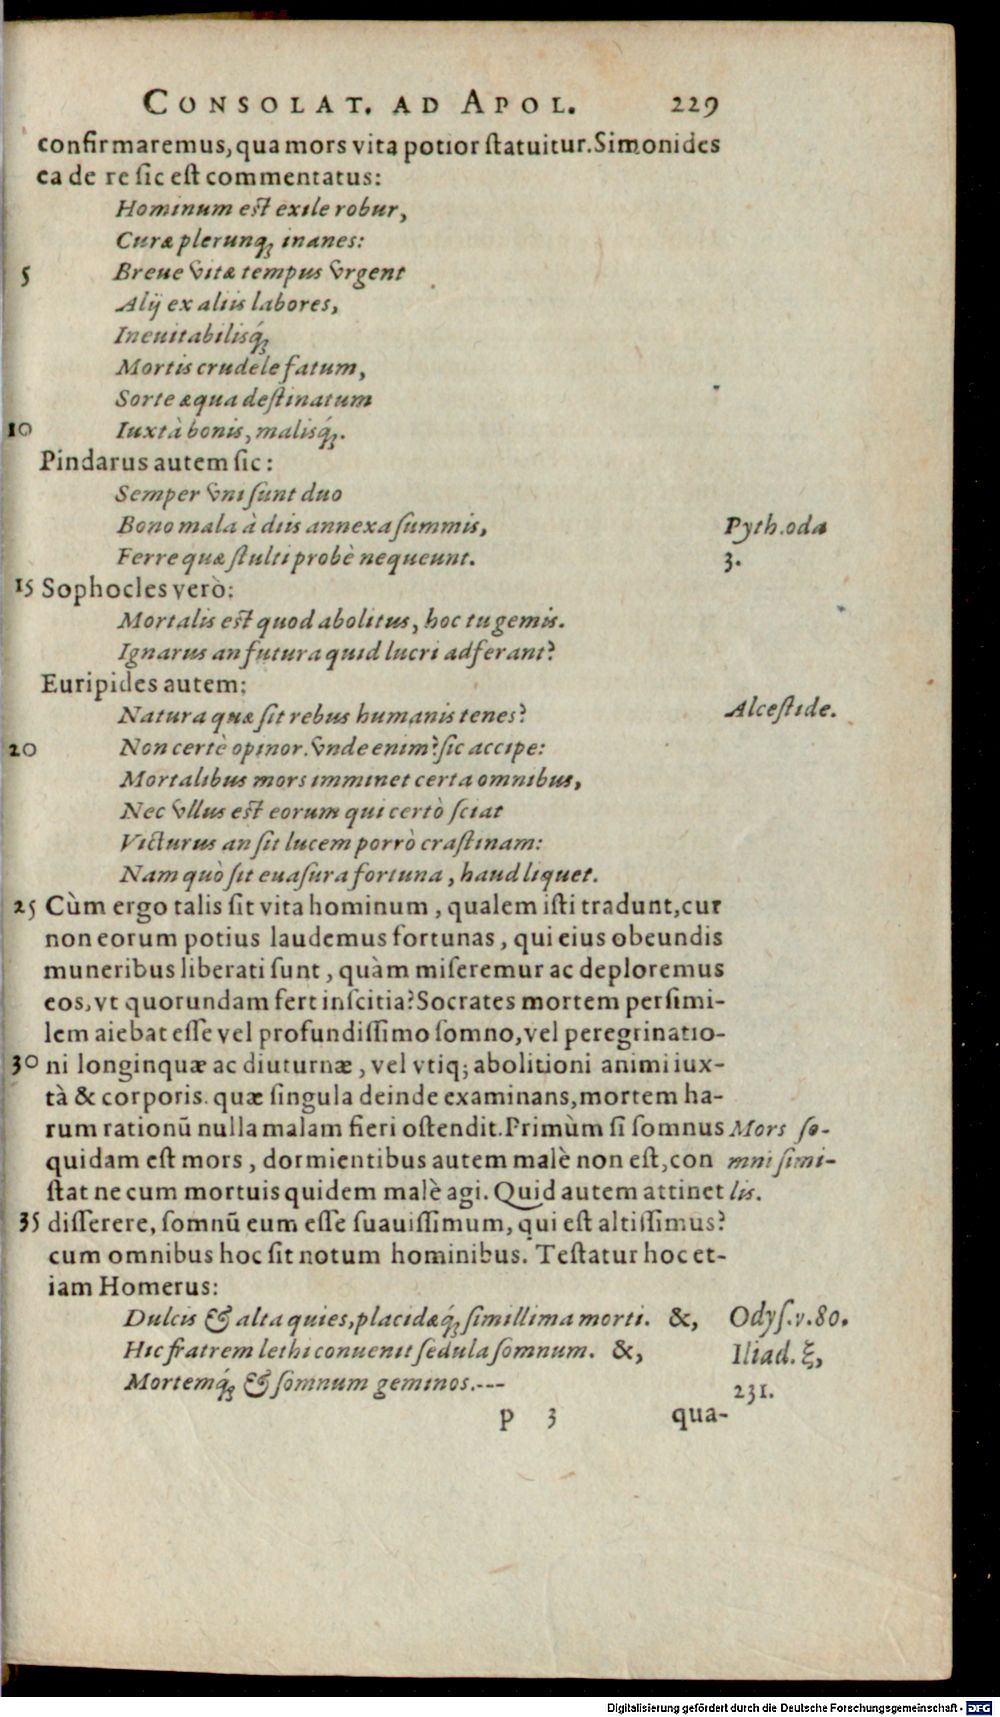 CONSOLAT. AD APOL. 229
confirmaremus, qua mors vita potior ſtatuitur. Simonides
ea de re ſic eſt commentatus:
Hominum eſt exile robur,
Curæ plerunq́; inanes:
5 Breue vitæ tempus vrgent
Alij ex aliis labores,
Ineuitabilisq́;
Mortis crudele fatum,
Sorte æqua deſtinatum
10 Iuxtà bonis, malisq́;.
Pindarus autem ſic:
Semper vni ſunt duo
Bono mala à diis annexa ſummis, Pyth. oda
Ferre quæ ſtulti probè nequeunt. 3.
15 Sophocles verò:
Mortalis eſt quod abolitus, hoc tu gemis.
Ignarus an futura quid lucri adferant?
Euripides autem:
Natura quæ ſit rebus humanis tenes? Alceſtide.
20 Non certè opinor. vnde enim? ſic accipe:
Mortalibus mors imminet certa omnibus,
Nec vllus eſt eorum qui certò ſciat
Victurus an ſit lucem porrò craſtinam:
Nam quò ſit euaſura fortuna, haud liquet.
25 Cùm ergo talis ſit vita hominum, qualem iſti tradunt, cur
non eorum potius laudemus fortunas, qui eius obeundis
muneribus liberati ſunt, quàm miſeremur ac deploremus
eos, vt quorundam fert inſcitia? Socrates mortem perſimi-
lem aiebat eſſe vel profundiſſimo ſomno, vel peregrinatio-
30 ni longinquæ ac diuturnæ, vel vtiq; abolitioni animi iux-
tà & corporis. quæ ſingula deinde examinans, mortem ha-
rum rationū nulla malam fieri oſtendit. Primùm ſi ſomnus Mors ſo-
quidam eſt mors, dormientibus autem malè non eſt, con mni ſimi-
ſtat ne cum mortuis quidem malè agi. Quid autem attinet lis.
35 diſſerere, ſomnū eum eſſe ſuauiſſimum, qui eſt altiſſimus?
cum omnibus hoc ſit notum hominibus. Teſtatur hoc et-
iam Homerus:
Dulcis & alta quies, placidæq́; ſimillima morti. &, Odyſ. v. 80.
Hic fratrem lethi conuenit ſedula ſomnum. &, Iliad. ξ,
Mortemq́; & ſomnum geminos.--- 231.
p 3 qua-
Digitalisierung gefördert durch die Deutsche Forschungsgemeinschaft - DFG